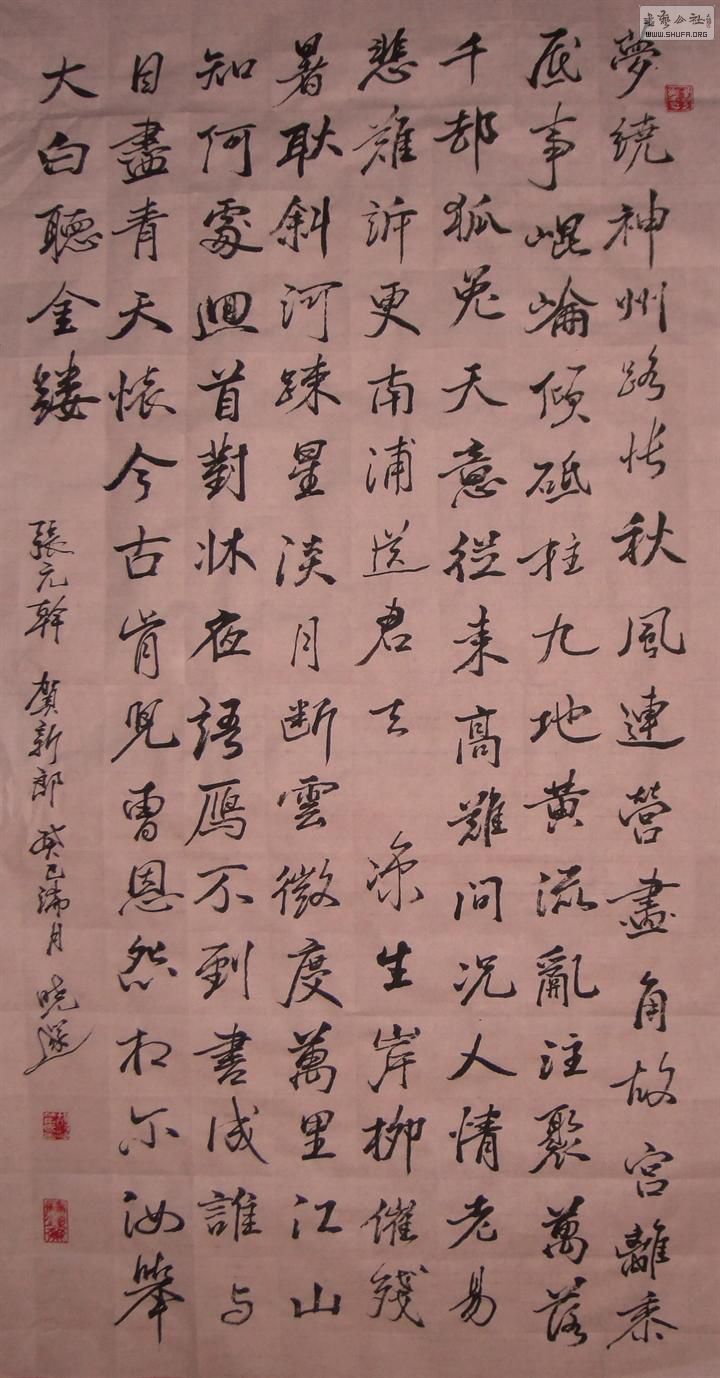 書藝公社
WWW.SHUFA.ORG
夢繞神州路悵秋風連營畫角故宮離黍
底事崐崘傾砥柱九地黄流亂注聚萬落
千邨狐兔天意從来高難問況人情老易
悲難訴更南浦送君去 凉生岸柳催殘
暑耿斜河疎星淡月断雲微度萬里江山
知何處迴首對牀夜語鴈不到書成誰与
目盡青天懷今古肯兒曹恩怨相尔汝舉
大白聽金縷
張元幹 賀新郎 癸巳蒲月 曉